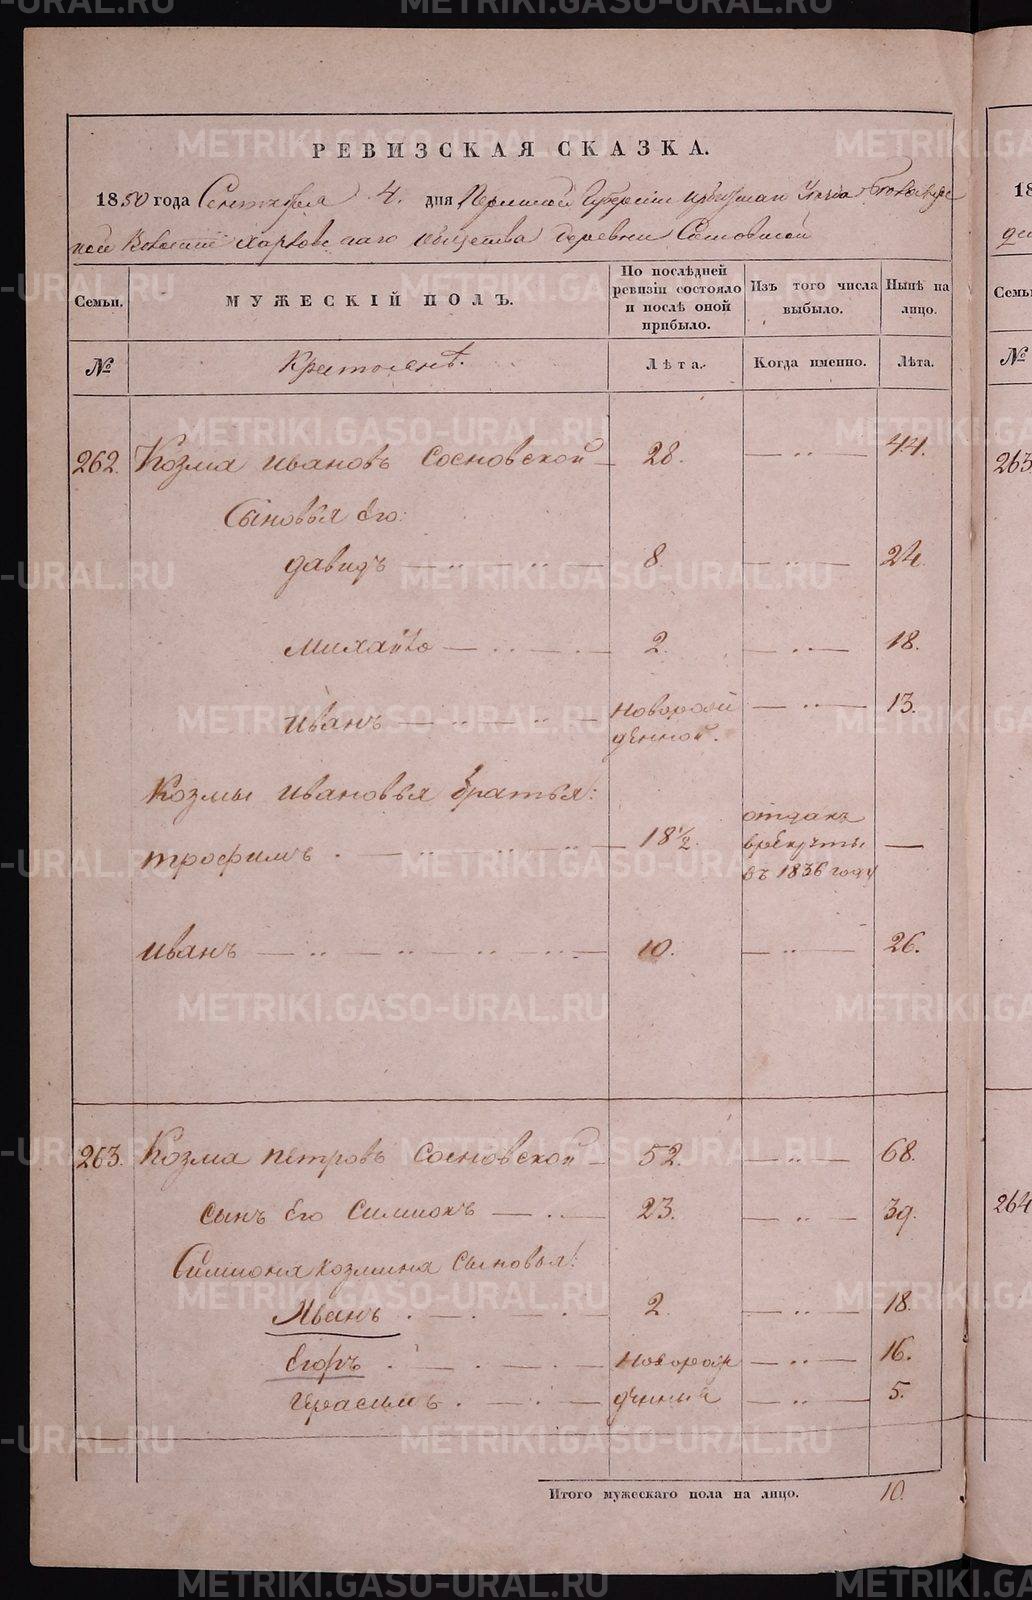 РЕВИЗСКАЯ СКАЗКА.
1850 года Сентября 4. дня Пермской Губернии Ирбитскаго Уезда
кой Волости Харловскаго общества деревни Сосновской
Семьи.
МУЖЕСКІЙ ПОЛЪ.
По послѣдней ревизіи состояло и послѣ оной прибыло.
Изъ того числа выбыло.
Нынѣ на лицо.
№
Крестьянъ.
Лѣта.
Когда именно.
Лѣта.
262. Козма Ивановъ Сосновской 28. 44.
Сыновья Его:
Давидъ 8. 24.
Михайло 2. 18.
Иванъ Новорож 13.
денной.
Козмы Ивановья братья:
отданъ
трофимъ 18 1/2. врекруты
въ 1836 году
Иванъ 10. 26.
263. Козма Петровъ Сосновской 52. 68.
сынъ Его Симионъ 23. 39.
Симиона Козмина сыновья:
Иванъ 2. 18.
Егоръ Новорож 16.
Герасимъ денныя 5.
Итого мужескаго пола на лицо. 10.
18
де
Семьи
№
263
264
METRIKI.GASO-URAL.RU